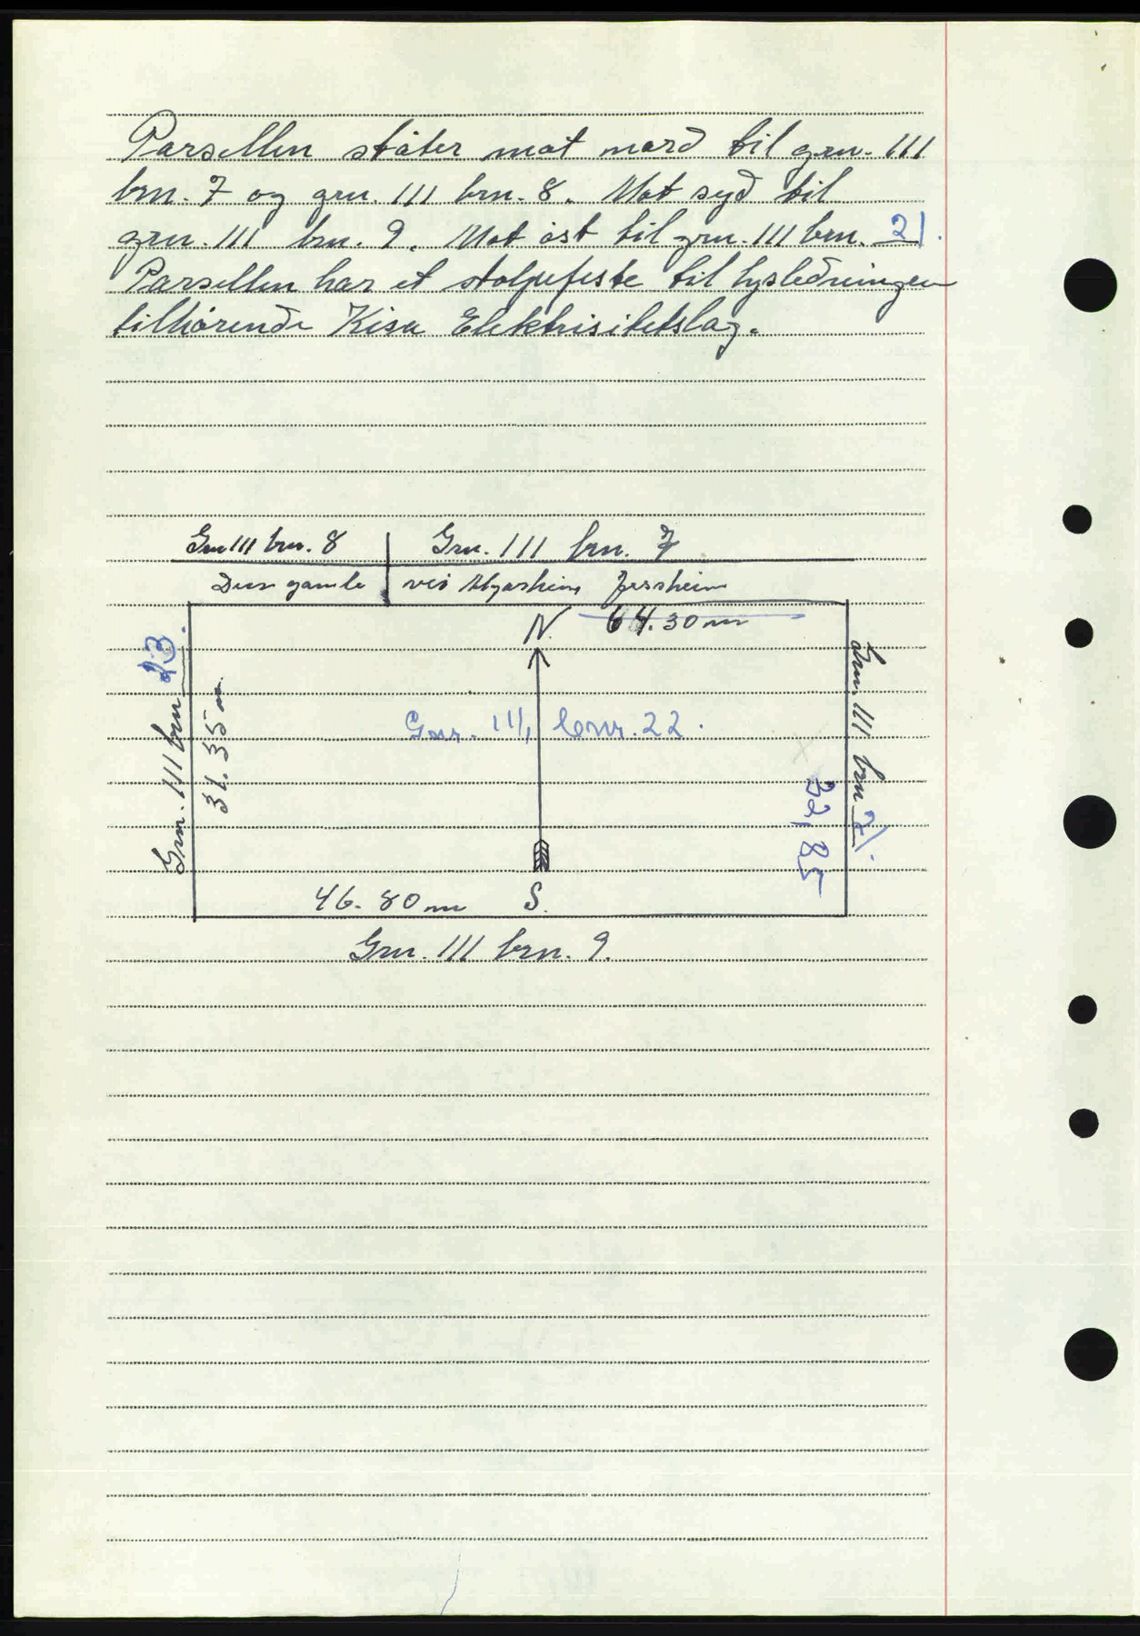 Parsellen støter mot nord til grn. 111
brn. 7 og grn. 111 brn. 8. Mot syd til
grn. 111 brn. 9. Mot øst til grn. 111 brn. 21.
Parsellen har et stolpefeste til lysledningen
tilhørende Kisa Elektrisitetslag.
Grn 111 brn. 8
Grn. 111 brn. 7
Den gamle vei Algarheim Jessheim
N. 64.30 m
Grn. 111 brn 23.
31.35 m.
Gnr. 111, bnr. 22.
Grn. 111 brn 21.
32,85
46.80 m S.
Grn. 111 brn. 9.